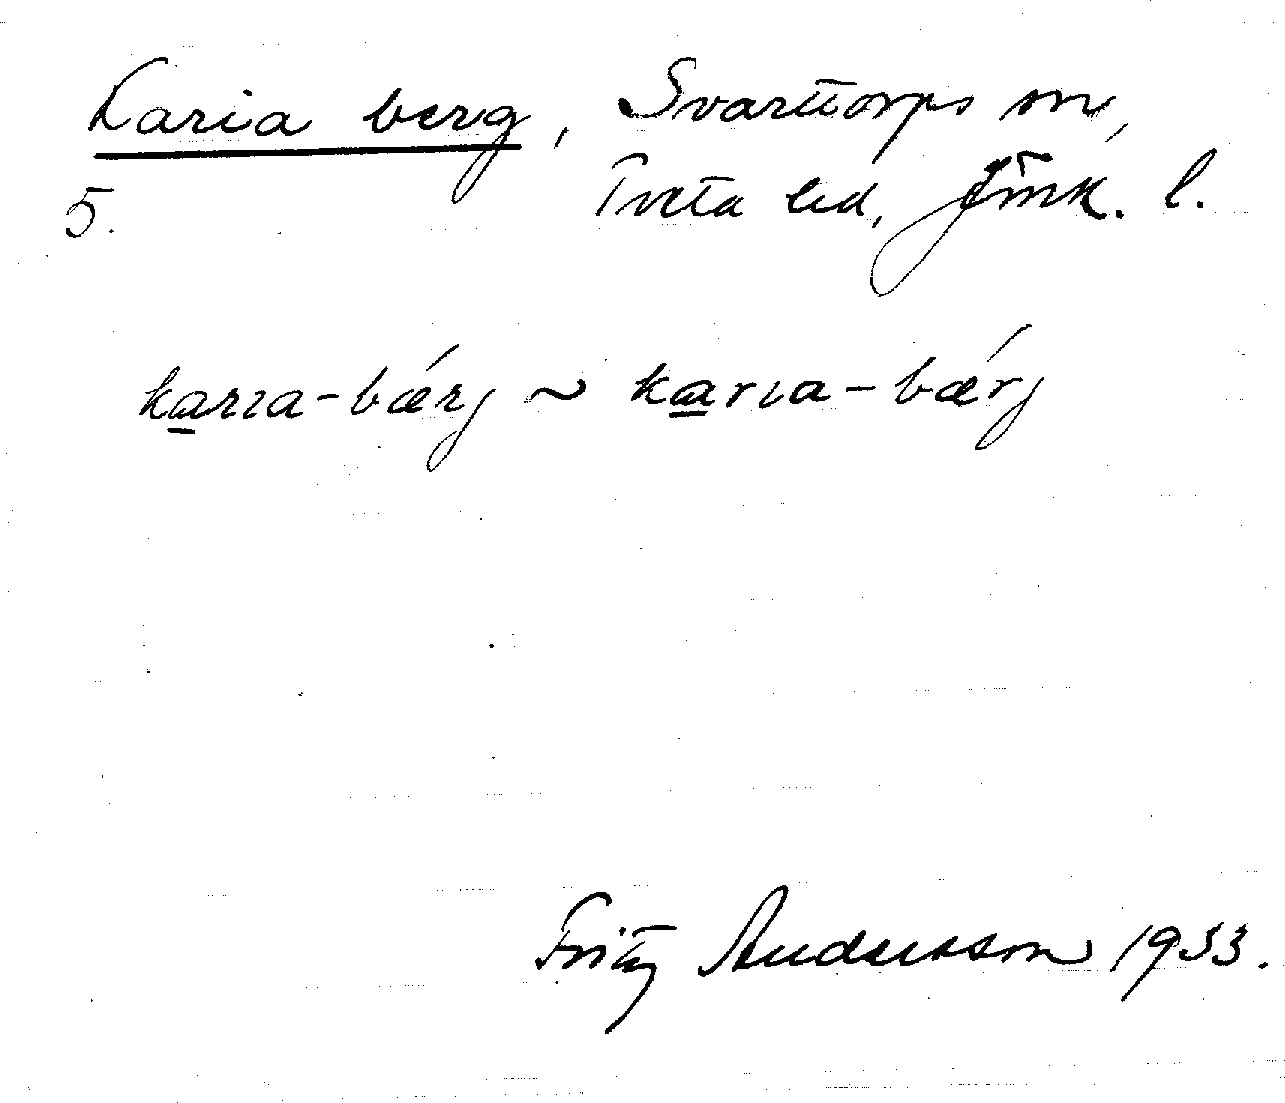 Karia berg, Svarttorps sn,
5. Tveta hd, Jönk. l.
karıa-bǽrj ~ karıa-bǽrj
Fritz Andersson 1933.